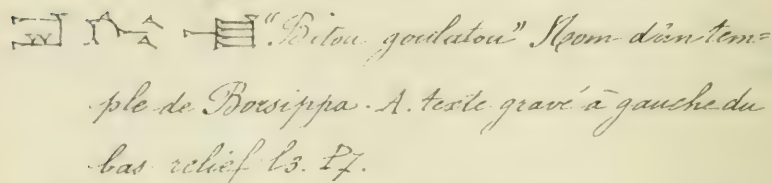 "Bitou goulatou" Nom d'un tem=
ple de Borsippa. A. texte gravé à gauche du
bas relief l3. P7.